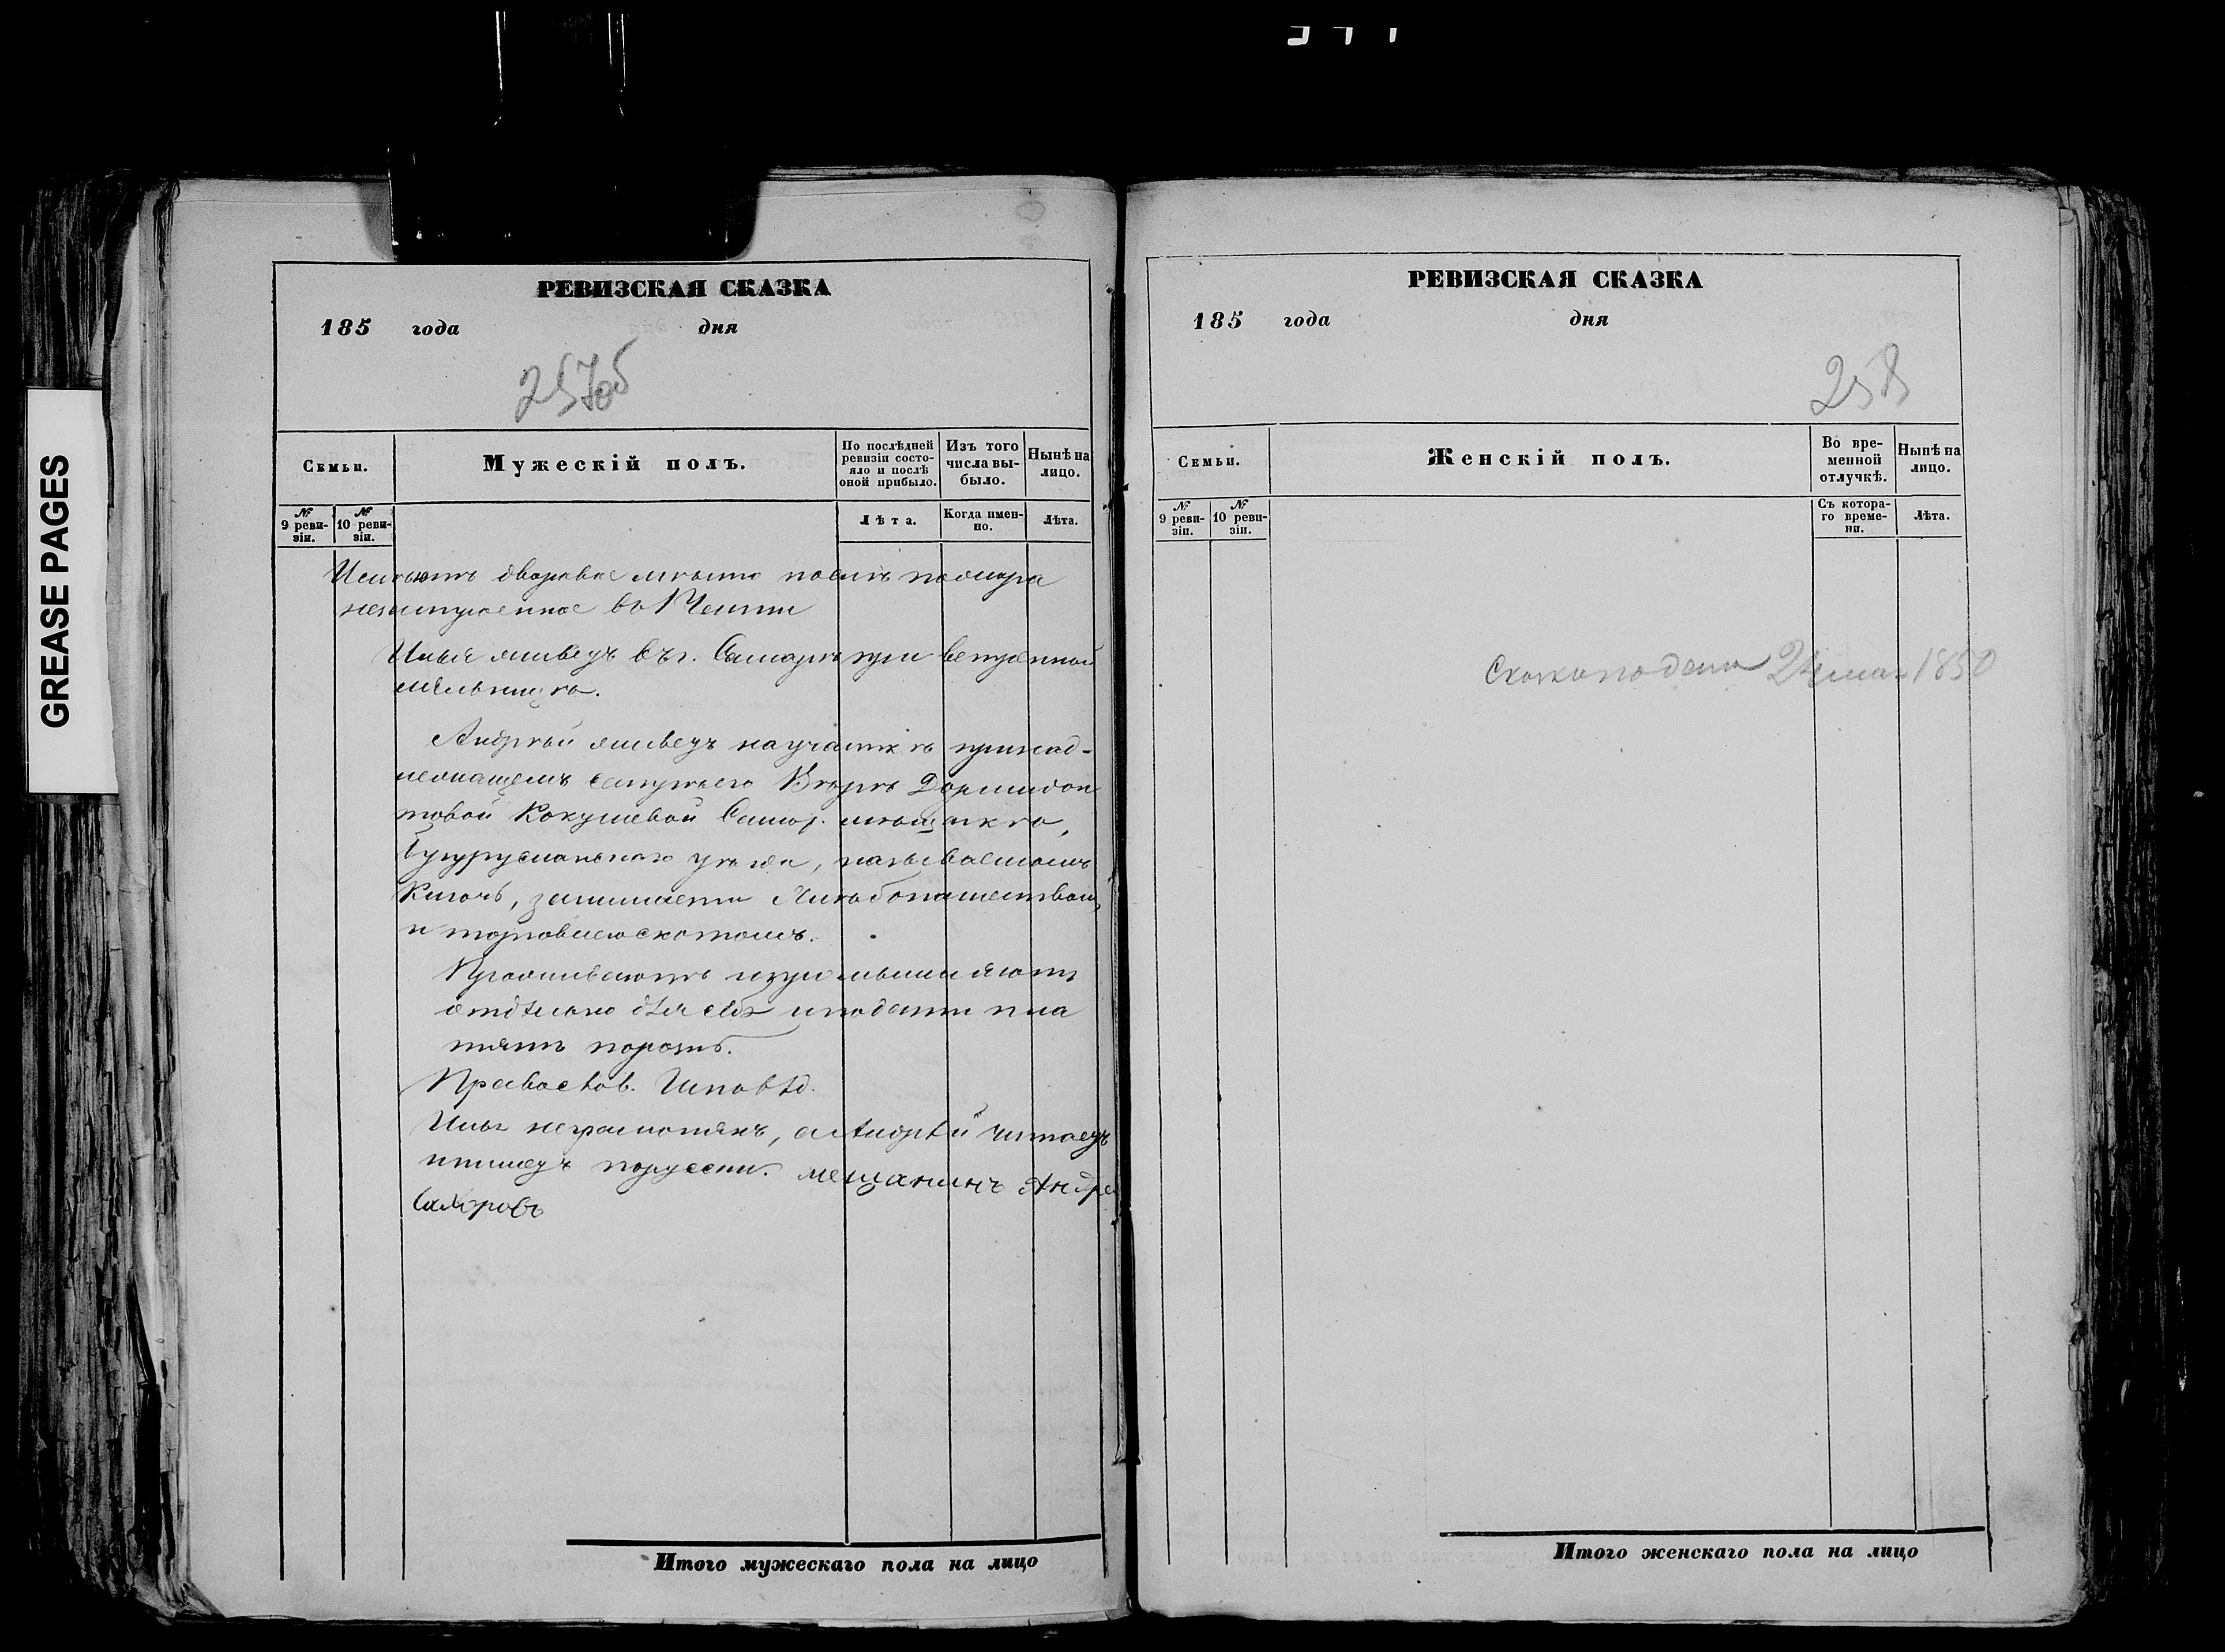 GREASE PAGES
РЕВИЗСКАЯ СКАЗКА
185 года дня
257об
Семьи.
Мужескій полъ.
По послѣдней ревизіи состояло и послѣ оной прибыло.
Изъ того числа выбыло.
Нынѣ на лицо.
№ 9 ревизіи.
№ 10 ревизіи.
Лѣта.
Когда именно.
Лѣта.
Имѣютъ дворовое мѣсто послѣ пожара
незастроенное въ 1 Части
Илья живетъ въ г. Самарѣ при ветряной
мельницѣ.
Андрѣй живетъ на участкѣ принад-
лежащемъ Вѣрѣ Доримидон
товой Кокушевой Самар. мѣщанкѣ,
Бугурусланскаго уѣзда, называемомъ
Ключъ, занимается Хлѣбопашествомъ
и торговлею скотомъ.
Проживаютъ и промышляютъ
отдѣльно для себя и подати пла
тятъ порознь.
Правослов. Исповѣд.
Илья неграмотенъ, а Андрѣй читаетъ
и пишетъ поруски. мещанинъ Андре
Сахаровъ
Итого мужескаго пола на лицо
РЕВИЗСКАЯ СКАЗКА
185 года дня
258
Семьи.
Женскій полъ.
Во временной отлучкѣ.
Нынѣ на лицо.
№ 9 ревизіи.
№ 10 ревизіи.
Съ котораго времени.
Лѣта.
Сказка подана 24 мая 1850
Итого женскаго пола на лицо